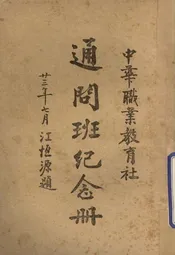 中華職業教育社
通問班紀念冊
廿三年七月 江恒源題